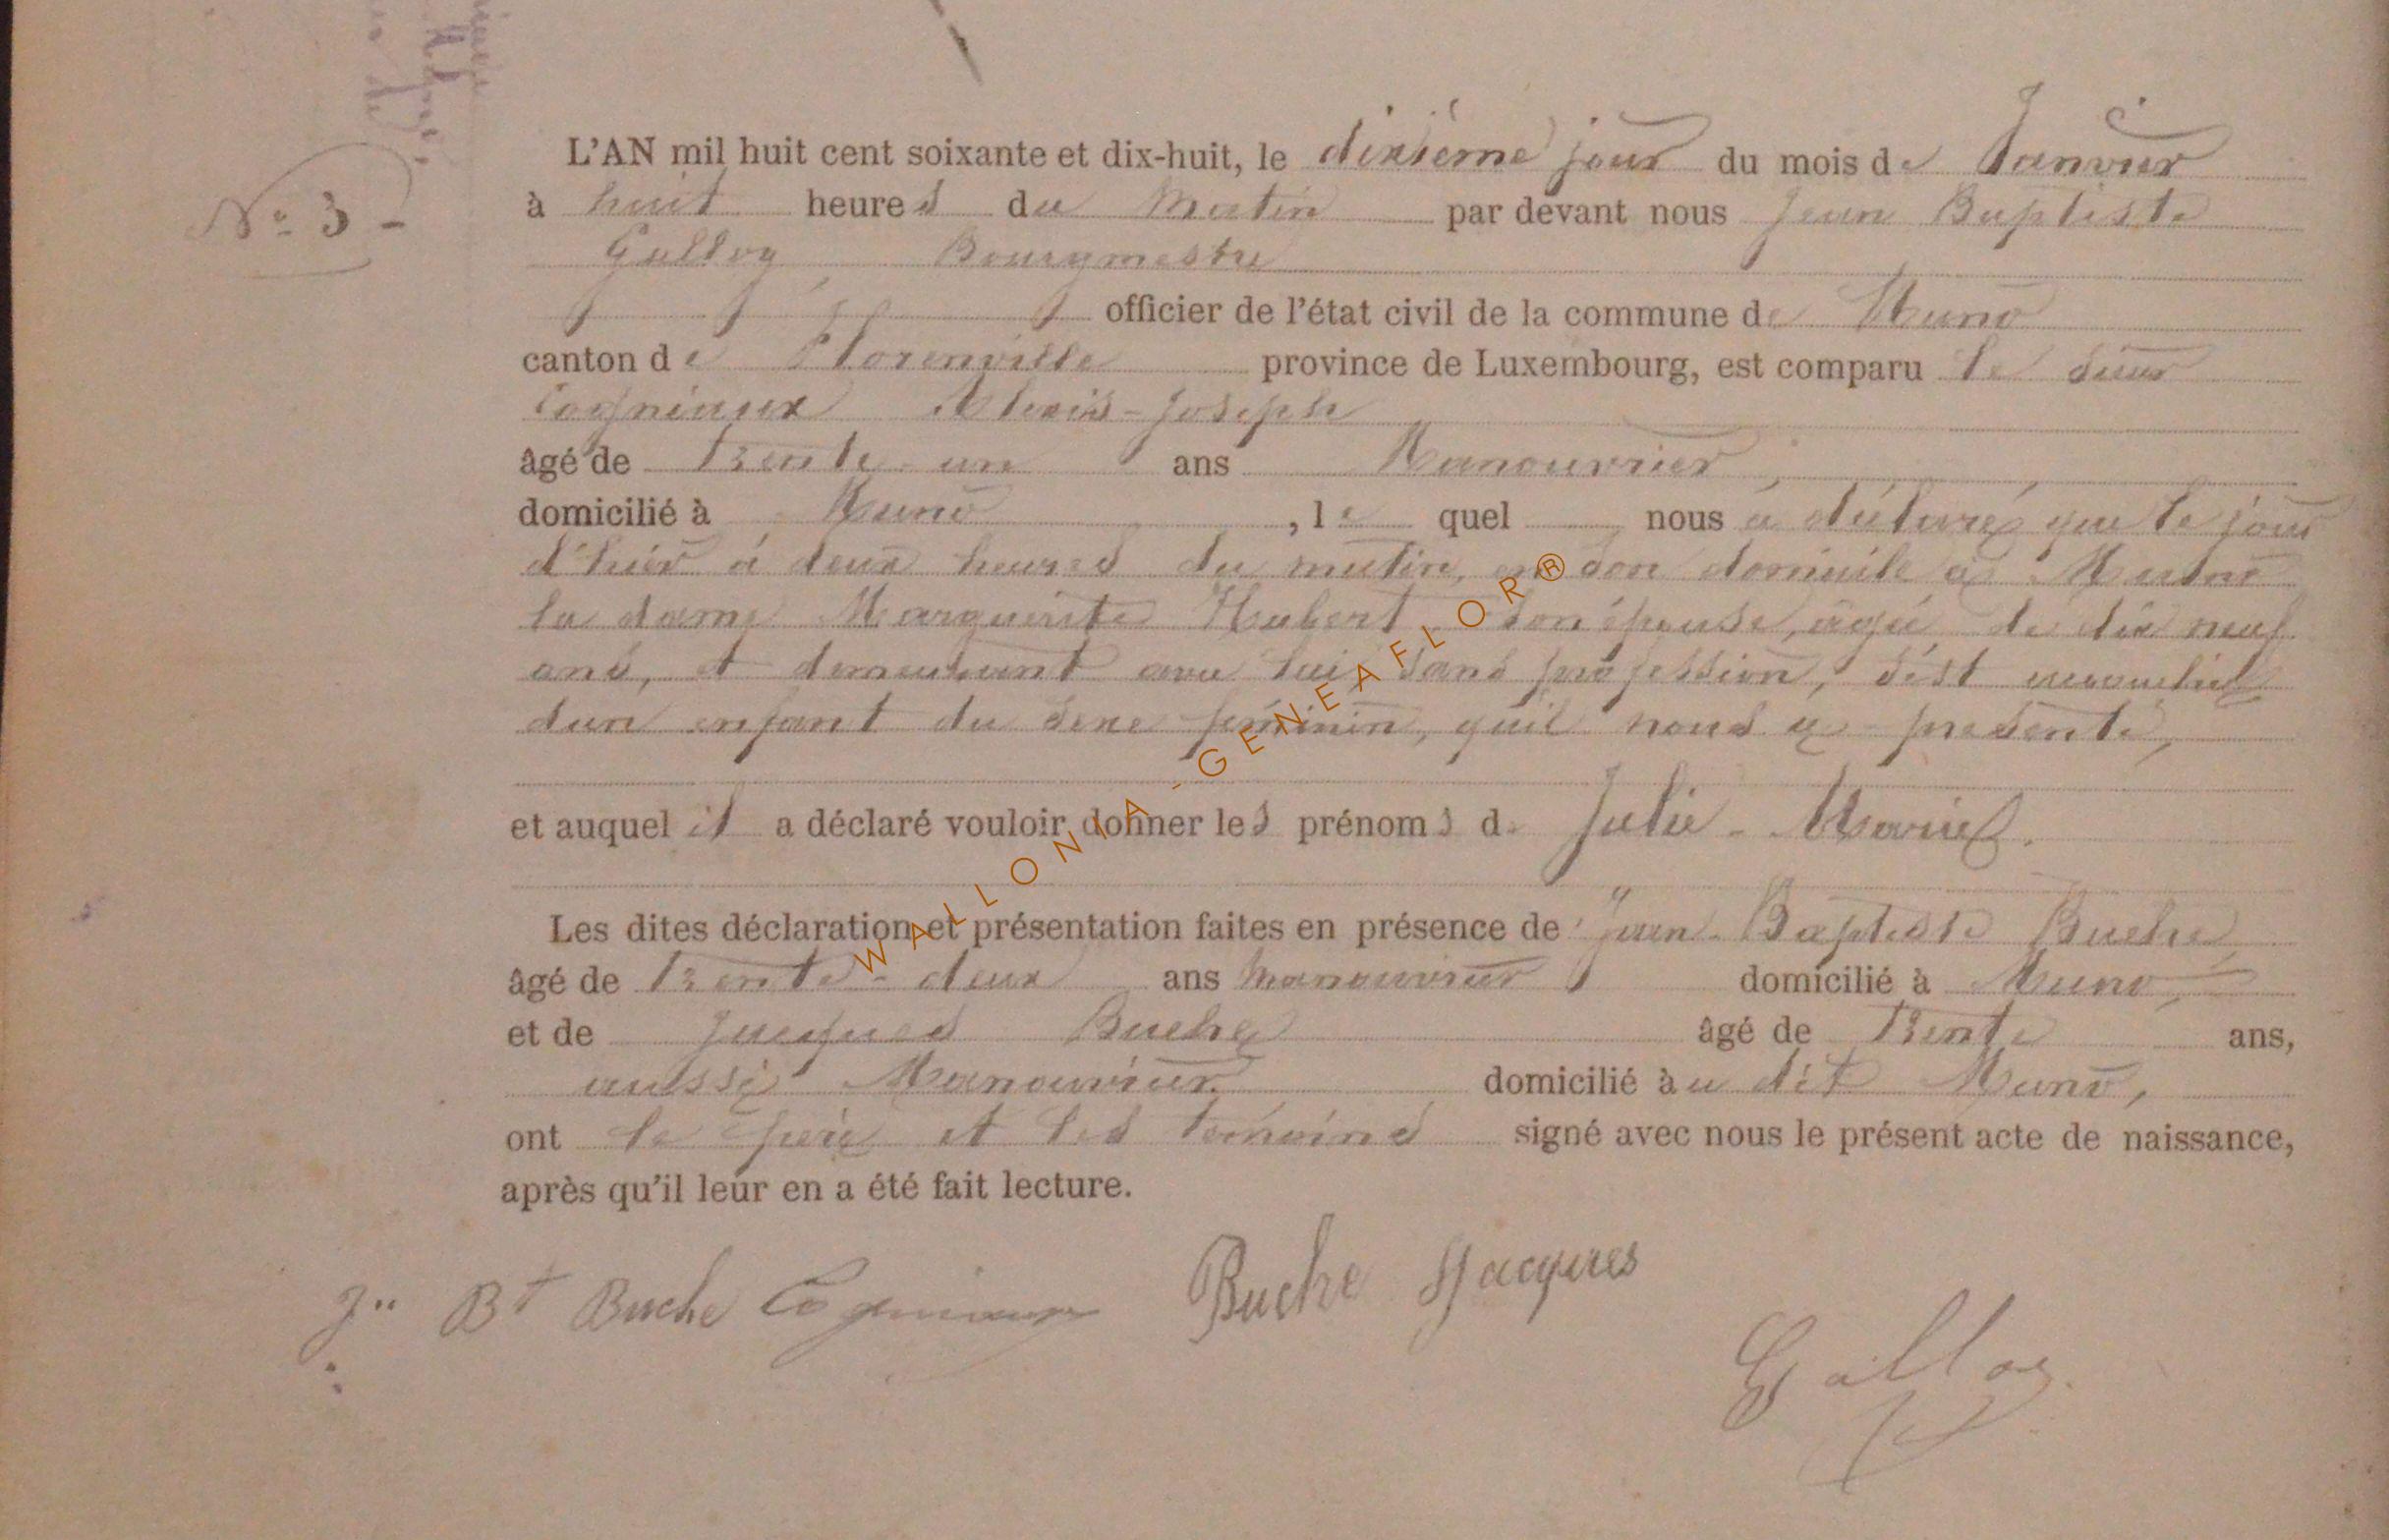 L'AN mil huit cent soixante et dix-huit, le dixième jour du mois de Janvier
N° 3 -
à huit heures du Matin par devant nous Jean Baptiste
Galloy Bourgmestre
officier de l'état civil de la commune de Muno
canton de Florenville province de Luxembourg, est comparu le sieur
Cogniaux Alexis-Joseph
âgé de trente-un ans Manouvrier,
domicilié à Muno, lequel nous a déclaré que le jour
d'hier à deux heures du matin, en son domicile à Muno
la dame Marguerite Hubert son épouse, agée de dix neuf
ans, et demeurant avec lui, sans profession, s'est accouchée
dun enfant du sexe féminin, quil nous a présenté,
et auquel il a déclaré vouloir donner les prénoms de Julie-Marie.
Les dites déclaration et présentation faites en présence de Jean-Baptiste Buche
âgé de trente-deux ans manouvrier domicilié à Muno,
et de Jacques Buche âgé de trente ans,
aussi Manouvrier domicilié au dit Muno,
ont le père et les témoins signé avec nous le présent acte de naissance,
après qu'il leur en a été fait lecture.
Jn Bt Buche Cogniaux Buche Jacques
Galloy
WALLONIA-GENEAFLOR®